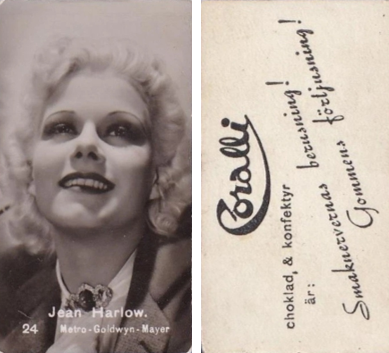 Jean Harlow.
24 Metro-Goldwyn-Mayer
Coralli
choklad, & konfektyr
är:
Smaknervernas berusning!
Gommens förtjusning!